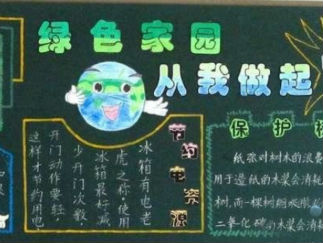 绿色家园
从我做起
节约电资源
冰箱有电老
虎之称,使用
冰箱最好减
少开门次数,
开门动作要轻,
这样才节约电
保护
纸张对树木的浪费
用于造纸的木浆会消耗
树,而一棵树
二氧化碳的木浆会消